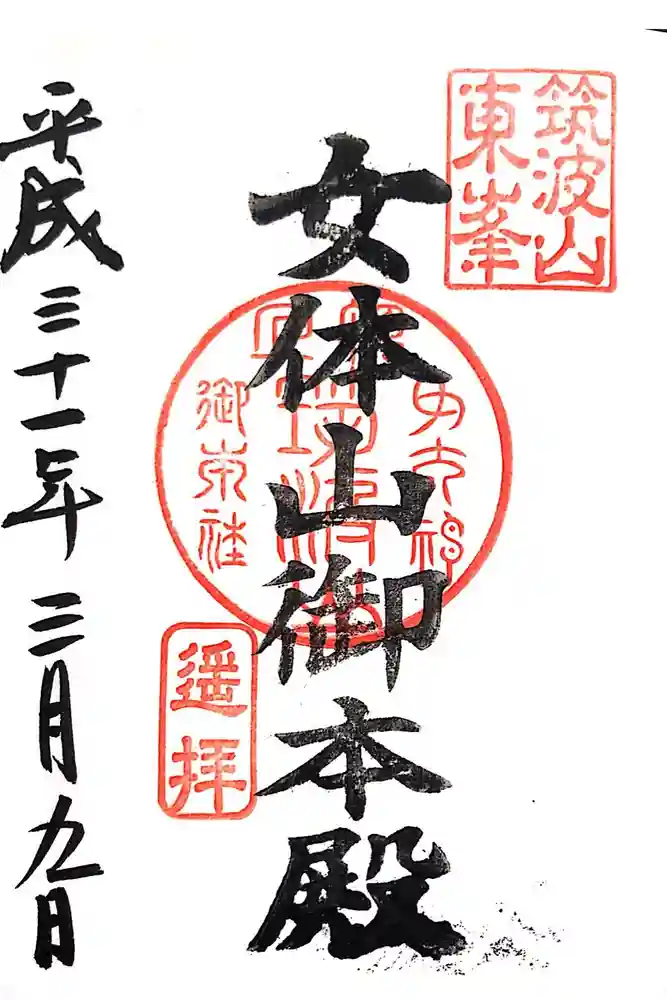 筑波山
東峯
女体山御本殿
御本社
遥拝
平成三十一年三月九日